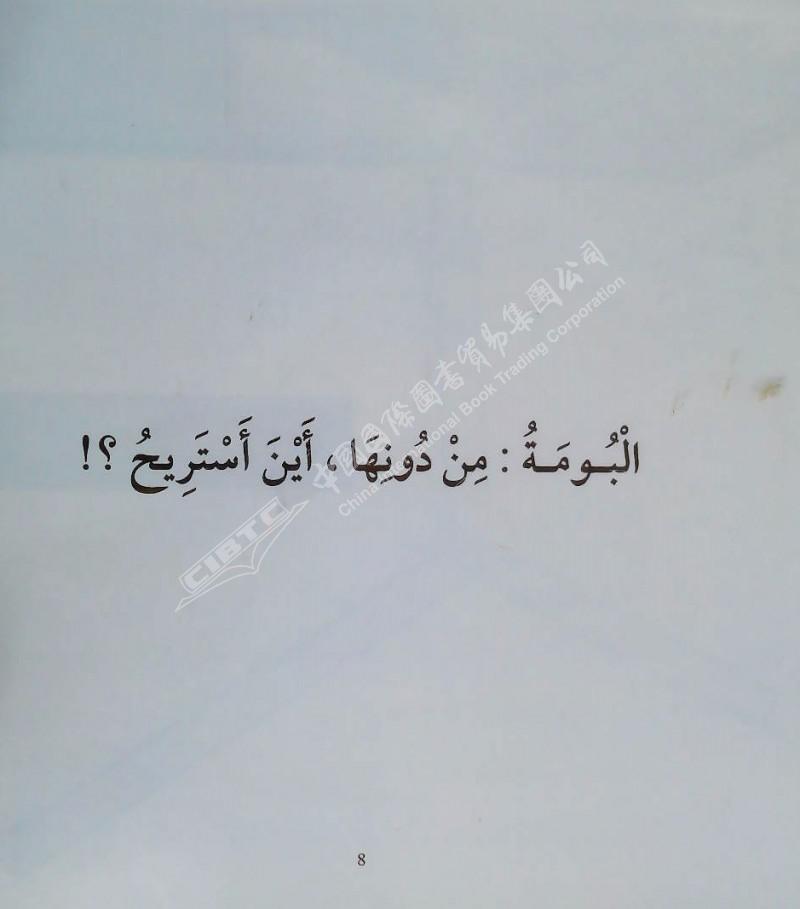 中國國際圖書貿易集團公司
China International Book Trading Corporation
CIBTC
الْبُـومَـةُ : مِنْ دُونِهَا، أَيْنَ أَسْتَرِيحُ ؟!
8